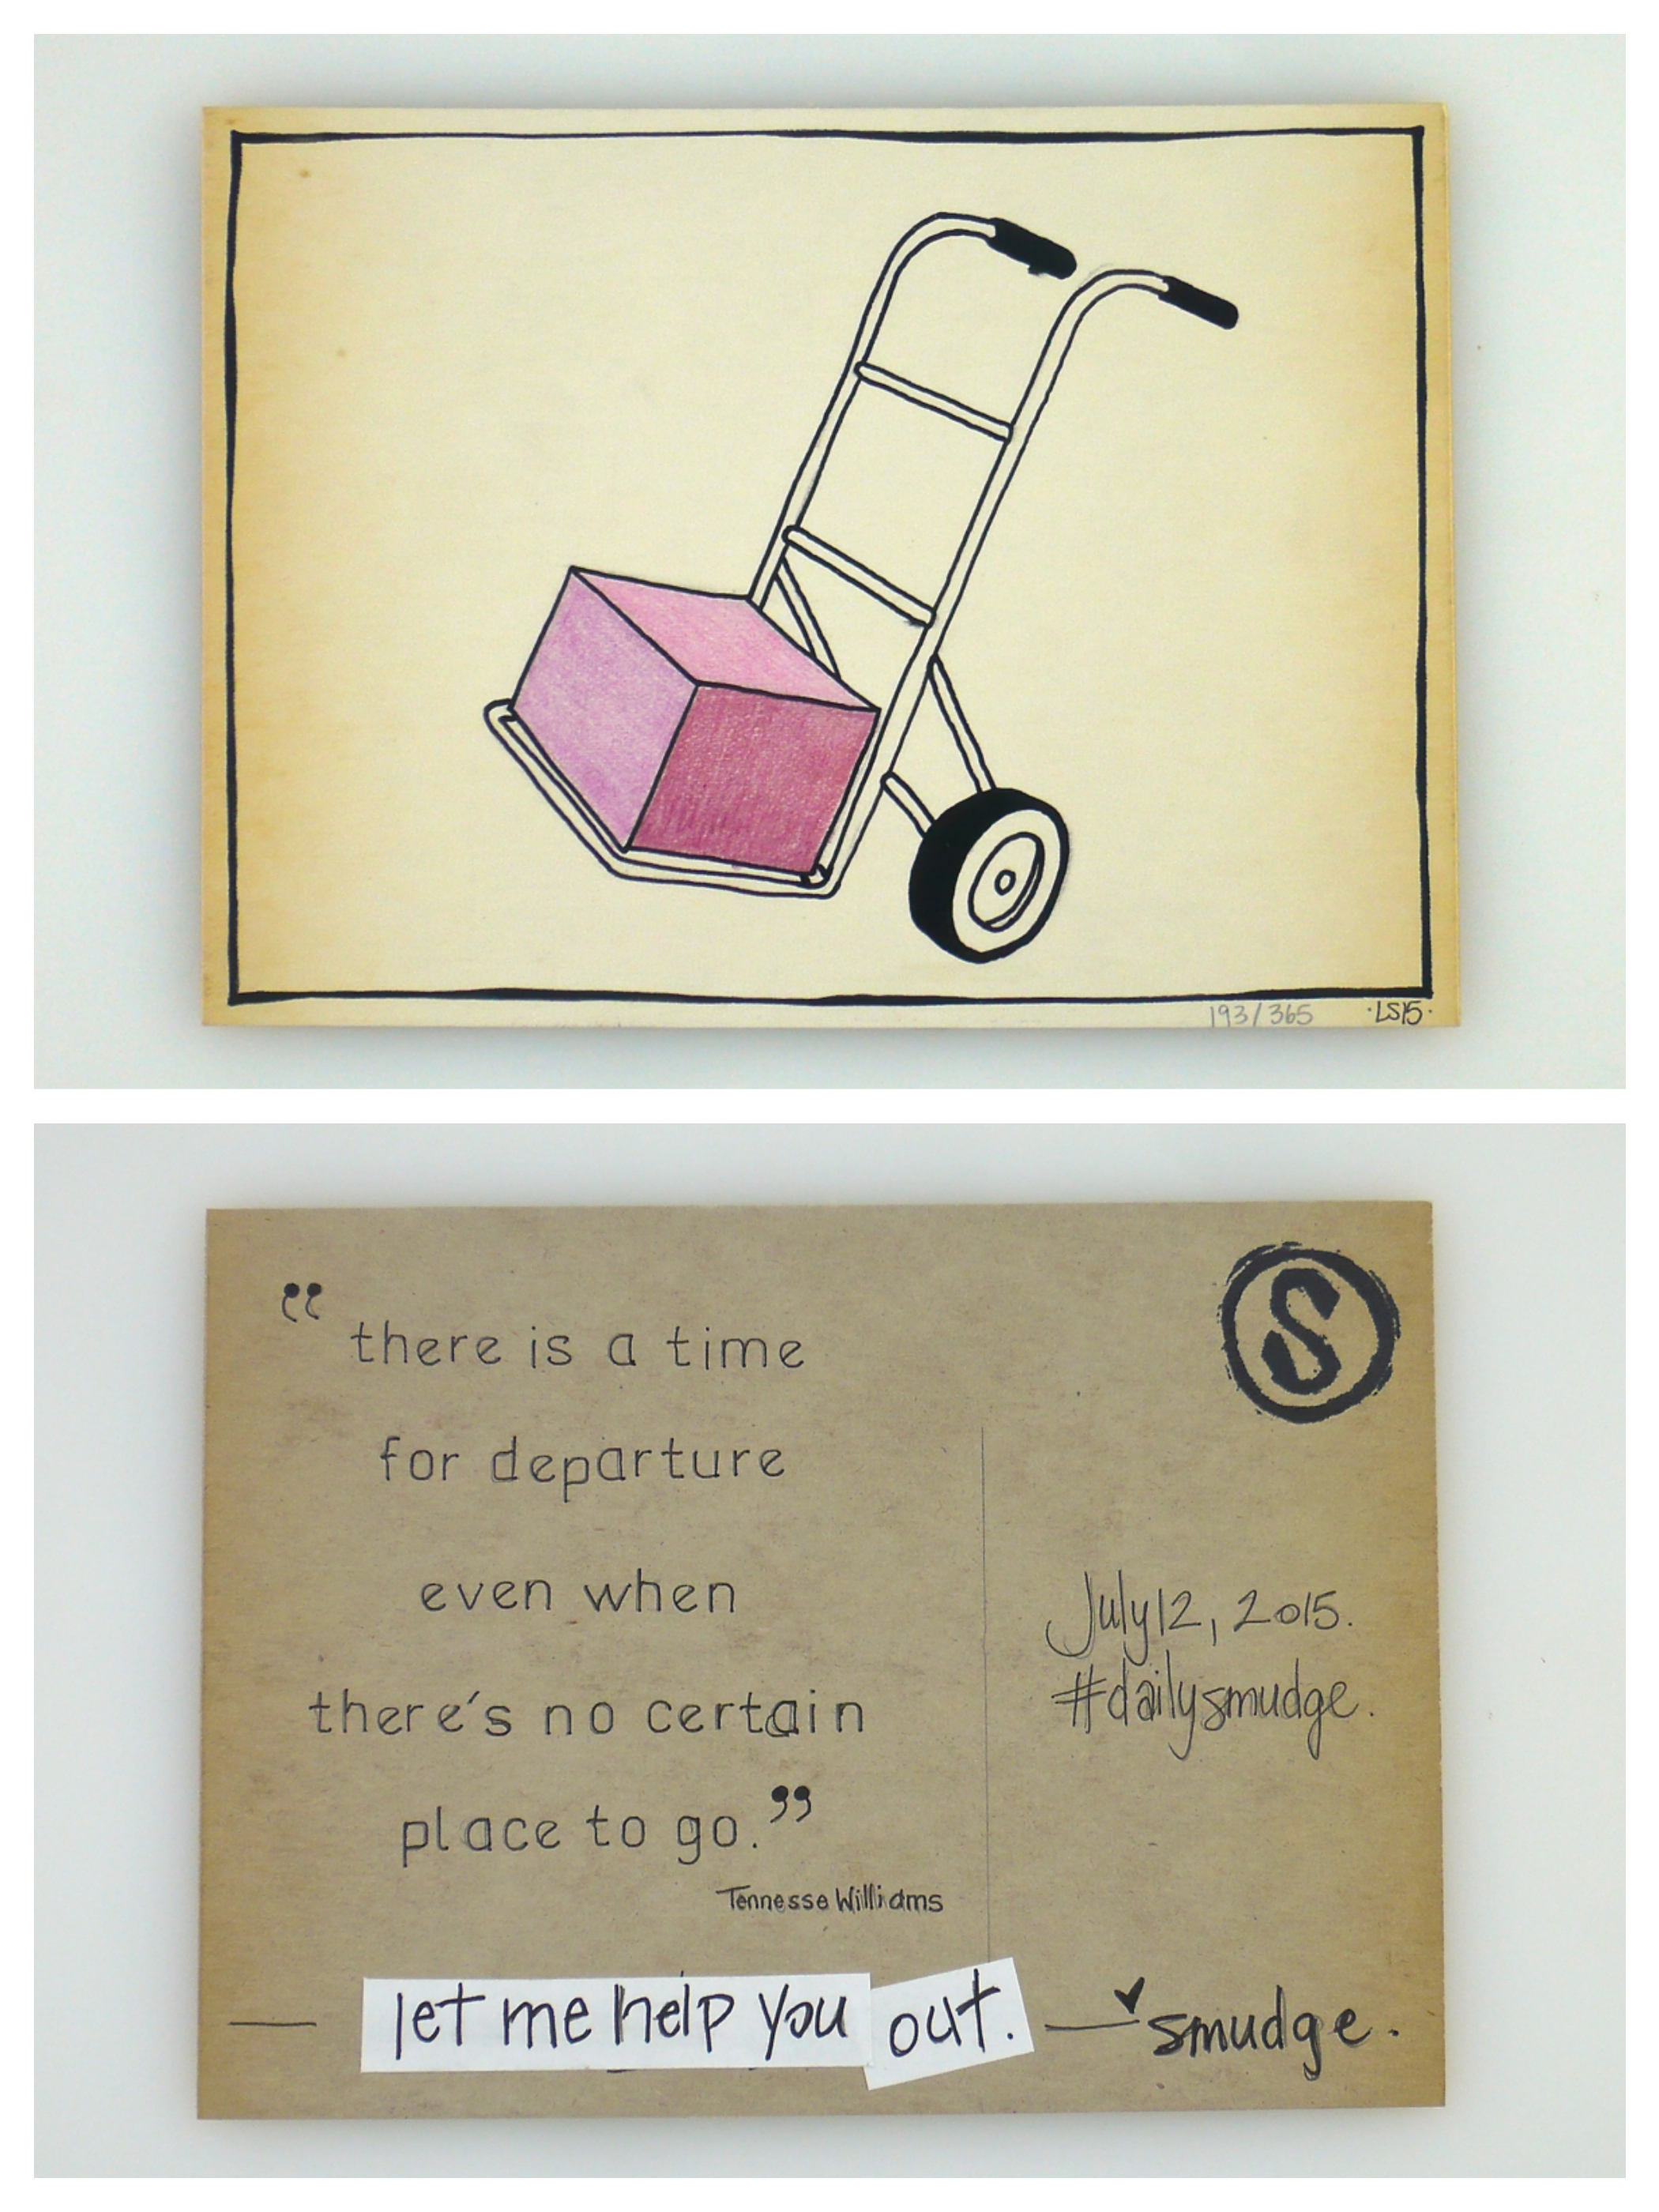 193/365 ·LS15·
“ there is a time
for departure
even when
there's no certain
place to go.”
Tennesse Williams
S
July 12, 2015.
#dailysmudge.
— let me help you out. — smudge.